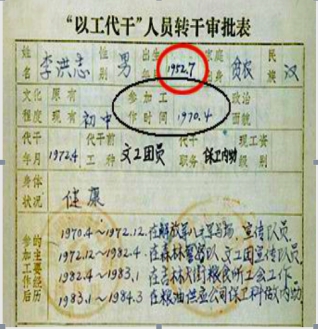 “以工代干”人员转干审批表
姓名 李洪志 性别 男 出生年月 1952.7 家庭出身 贫农 民族 汉
文化程度 原有 现有 初中 参加工作时间 1970.4 政治面貌
代干年月 1972.4 代干前工种 文工团员 现职务 保卫内勤 工资级别
身体状况 健康
参加工作后的主要经历
1970.4~1972.12.在解放军八一军马场,宣传队员.
1972.12~1982.4 在森林警察 队 文工团宣传队员.
1982.4~1983.1 在吉林大街粮食所工会工作
1983.1~1984.3 在粮油供应公司保卫科做内勤